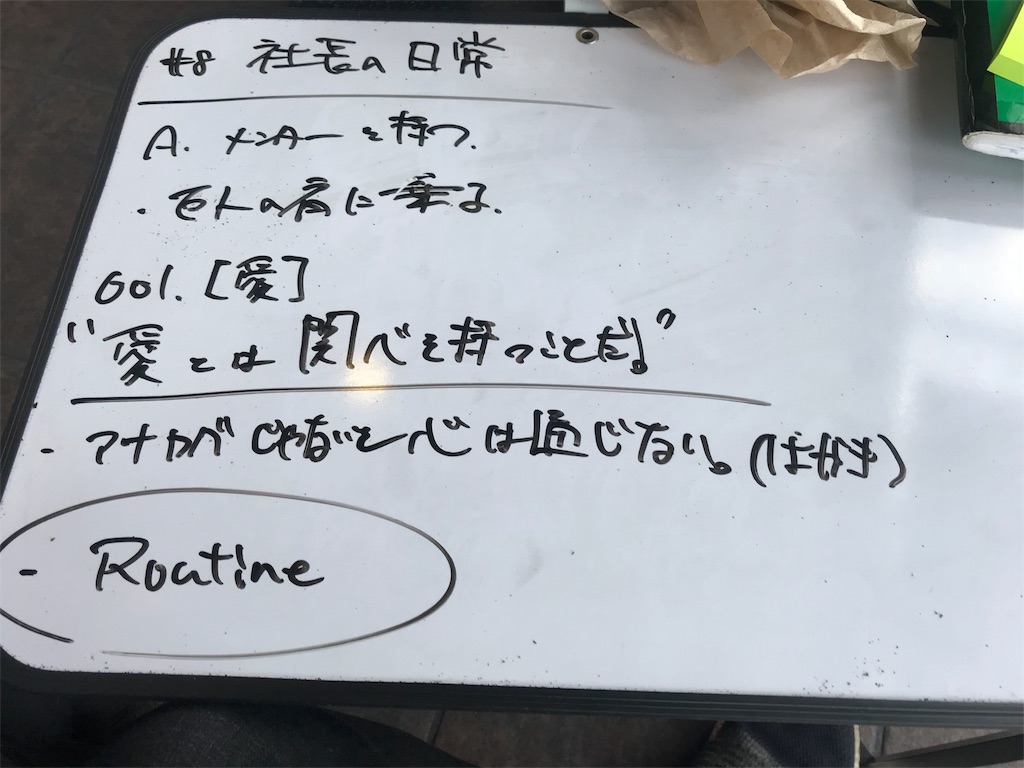 #8 社長の日常
A. メンターを持つ.
・巨人の肩に乗る.
001. [愛]
"愛とは関心を持つことだ。"
- アナログじゃないと心は通じない。(はがき)
- Routine